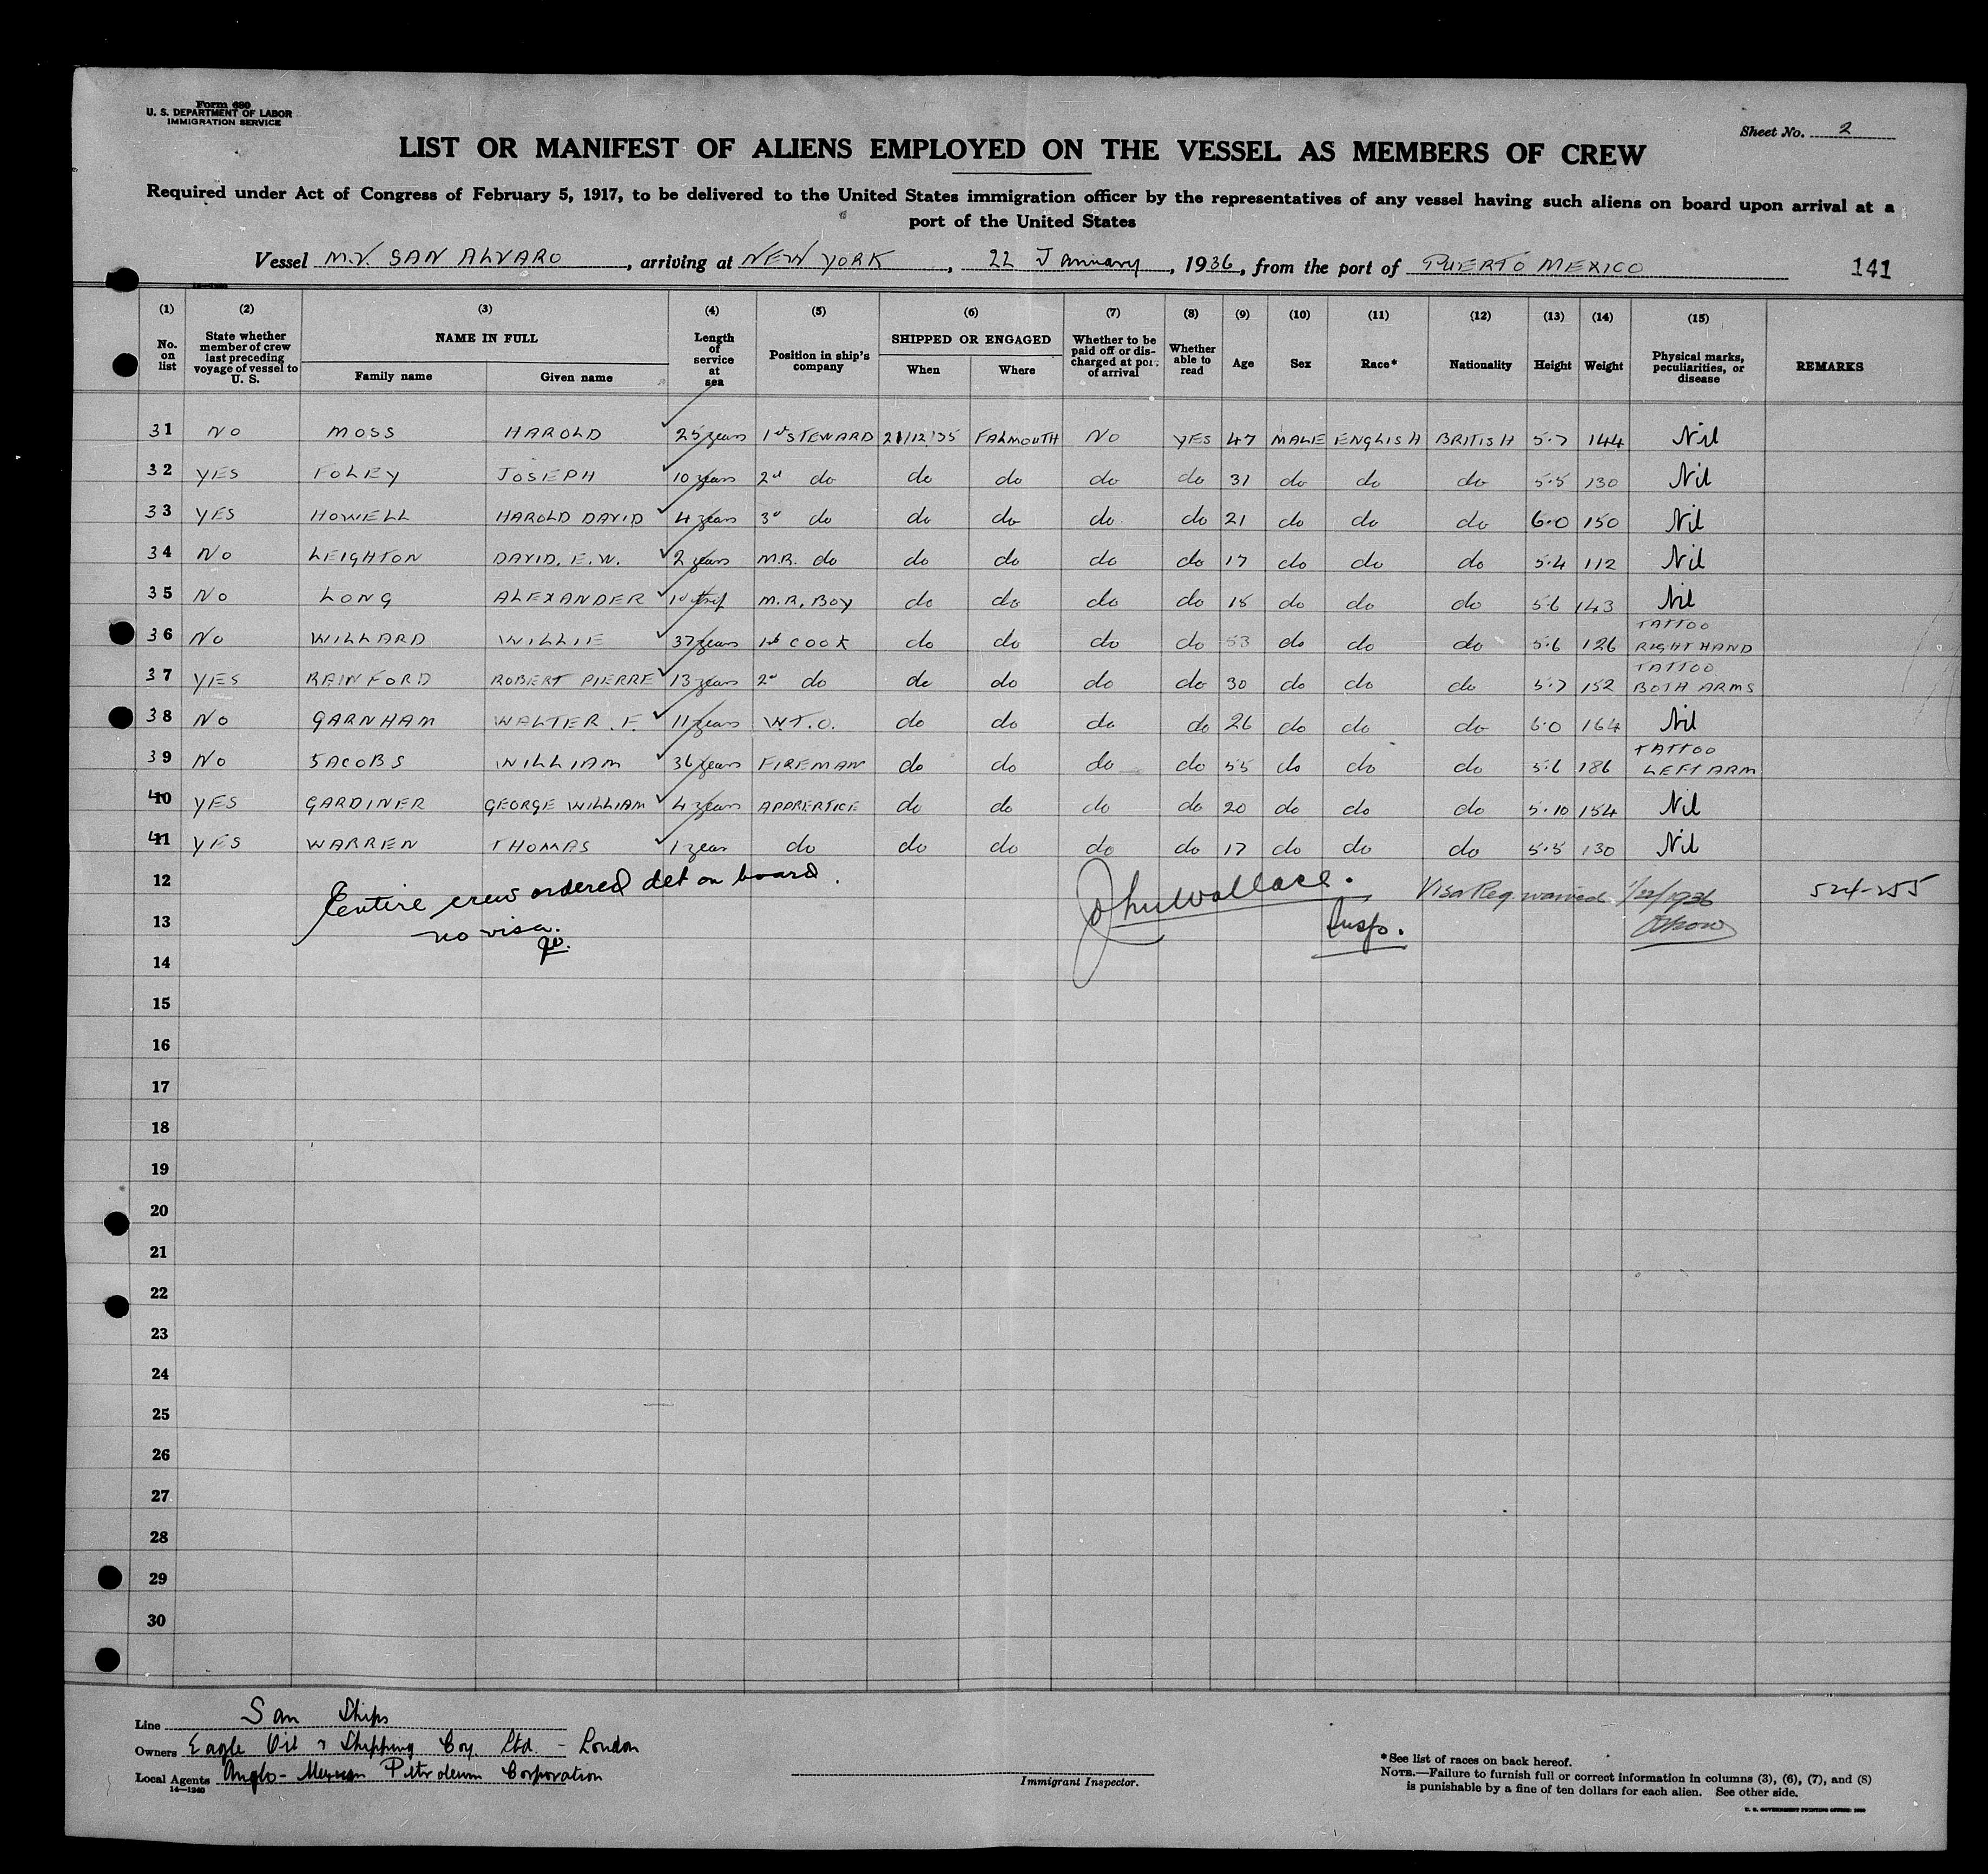 Form 680
U. S. DEPARTMENT OF LABOR
IMMIGRATION SERVICE
Sheet No. 2
LIST OR MANIFEST OF ALIENS EMPLOYED ON THE VESSEL AS MEMBERS OF CREW
Required under Act of Congress of February 5, 1917, to be delivered to the United States immigration officer by the representatives of any vessel having such aliens on board upon arrival at a
port of the United States
Vessel M.V. SAN ALVARO, arriving at NEW YORK, 22 January, 1936, from the port of PUERTO MEXICO 141
(1) (2) (3) (4) (5) (6) (7) (8) (9) (10) (11) (12) (13) (14) (15)
No. on list
State whether member of crew last preceding voyage of vessel to U. S.
NAME IN FULL
Family name Given name
Length of service at sea
Position in ship's company
SHIPPED OR ENGAGED
When Where
Whether to be paid off or discharged at port of arrival
Whether able to read
Age Sex Race* Nationality Height Weight
Physical marks, peculiarities, or disease
REMARKS
31 NO MOSS HAROLD 25 years 1st STEWARD 21/12/35 FALMOUTH NO YES 47 MALE ENGLISH BRITISH 5.7 144 Nil
32 YES FOLEY JOSEPH 10 years 2d do do do do do 31 do do do 5.5 130 Nil
33 YES HOWELL HAROLD DAVID 4 years 3d do do do do do 21 do do do 6.0 150 Nil
34 NO LEIGHTON DAVID. E. W. 2 years M.R. do do do do do 17 do do do 5.4 112 Nil
35 NO LONG ALEXANDER 1st trip M.R. BOY do do do do 18 do do do 5.6 143 Nil
36 NO WILLARD WILLIE 37 years 1st COOK do do do do 53 do do do 5.6 126 TATTOO RIGHT HAND
37 YES RAINFORD ROBERT PIERRE 13 years 2d do do do do do 30 do do do 5.7 152 TATTOO BOTH ARMS
38 NO GARNHAM WALTER. F. 11 years W.T.O. do do do do 26 do do do 6.0 164 Nil
39 NO JACOBS WILLIAM 36 years FIREMAN do do do do 55 do do do 5.6 186 TATTOO LEFT ARM
40 YES GARDINER GEORGE WILLIAM 4 years APPRENTICE do do do do 20 do do do 5.10 154 Nil
41 YES WARREN THOMAS 1 year do do do do do 17 do do do 5.5 130 Nil
12 Entire crew ordered det on board. John Wallace. Visa Req. waived 1/22/1936 524-255
13 no visa. Insp.
14
15
16
17
18
19
20
21
22
23
24
25
26
27
28
29
30
Line San Ships
Owners Eagle Oil & Shipping Coy. Ltd. - London
Local Agents Anglo-Mexican Petroleum Corporation
14—1240
Immigrant Inspector.
*See list of races on back hereof.
NOTE.—Failure to furnish full or correct information in columns (3), (6), (7), and (8)
is punishable by a fine of ten dollars for each alien. See other side.